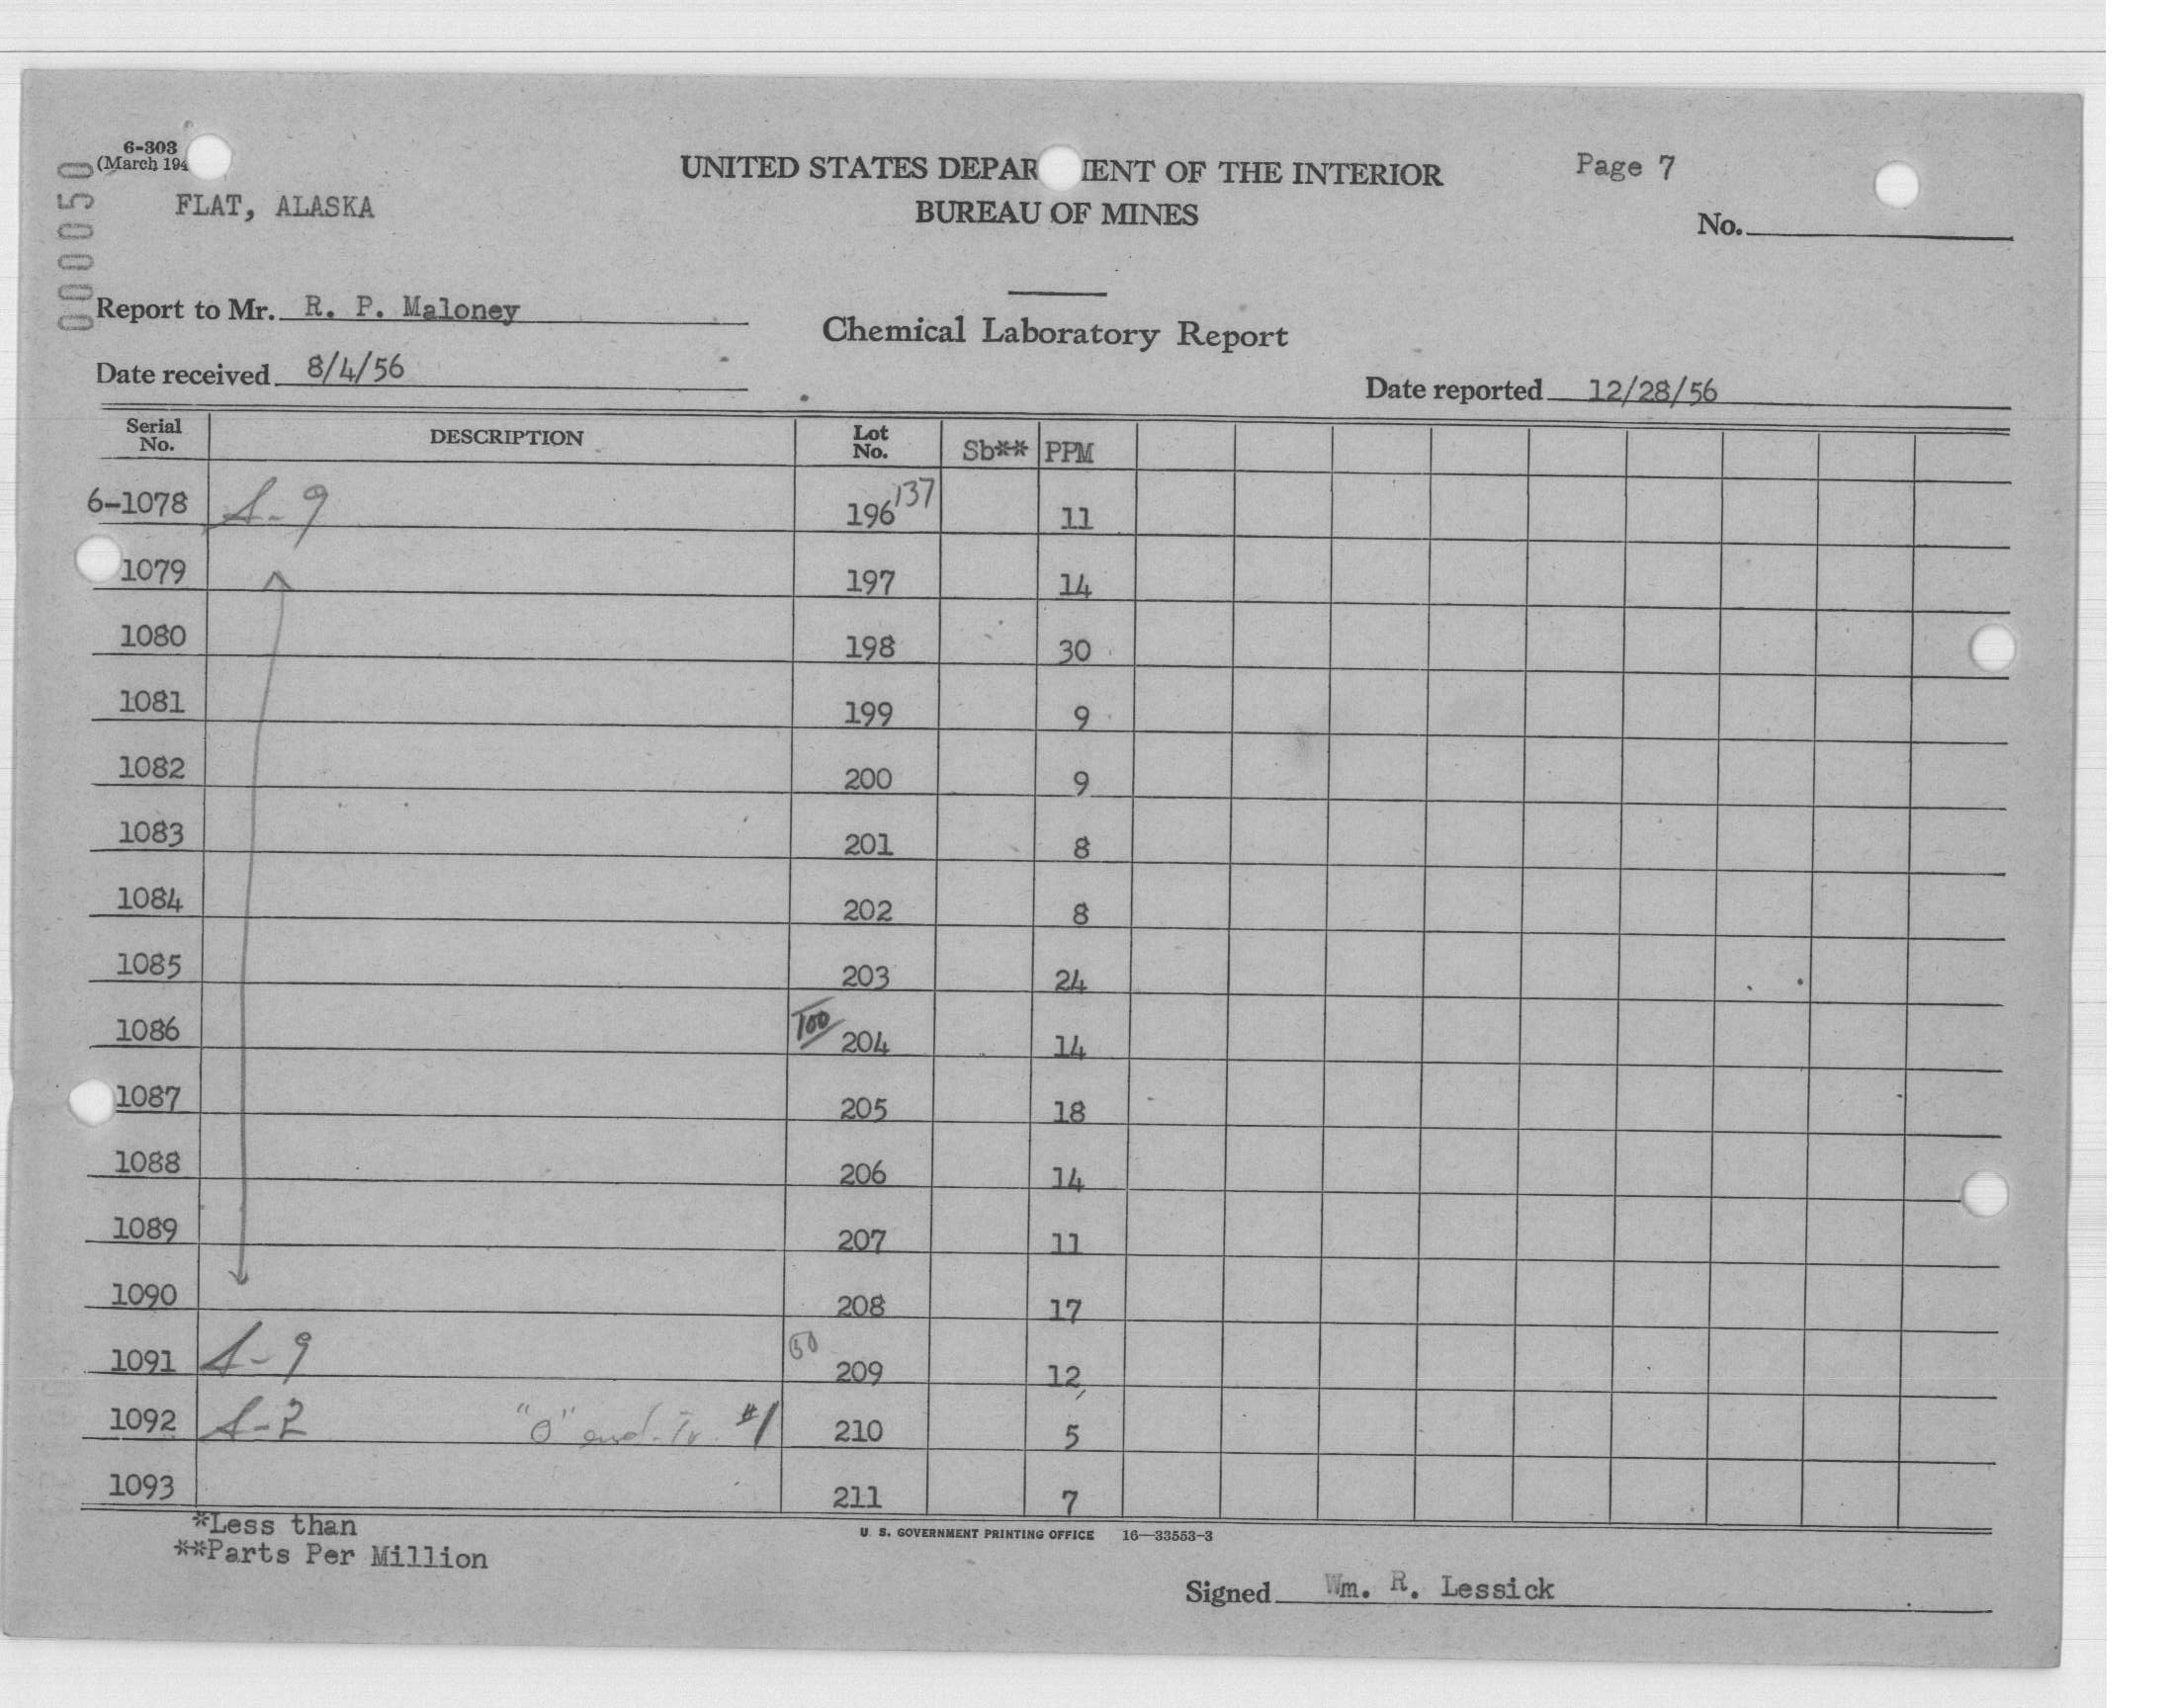 6-303
(March 194
UNITED STATES DEPAR MENT OF THE INTERIOR
Page 7
FLAT, ALASKA
BUREAU OF MINES
No.
000050
Report to Mr. R. P. Maloney
Chemical Laboratory Report
Date received 8/4/56
Date reported 12/28/56
Serial No. DESCRIPTION Lot No. Sb** PPM
6-1078 A-9 196 137 11
1079 197 14
1080 198 30
1081 199 9
1082 200 9
1083 201 8
1084 202 8
1085 203 24
1086 100 204 14
1087 205 18
1088 206 14
1089 207 11
1090 208 17
1091 A-9 50 209 12
1092 A-2 "O" end-Tr. #1 210 5
1093 211 7
*Less than
U. S. GOVERNMENT PRINTING OFFICE 16—33553-3
**Parts Per Million
Signed Wm. R. Lessick